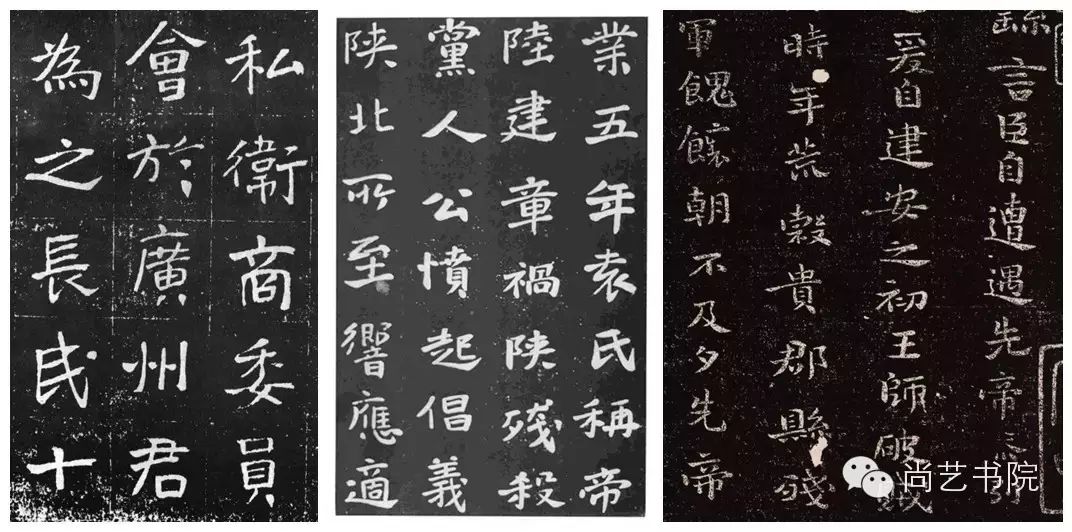 私衛商委員
會於廣州君
為之長民十
業五年袁氏稱帝
陸建章禍陕殘殺
黨人公憤起倡義
陕北所至響應適
言臣自遭遇先帝
爰自建安之初王師破
時年荒穀貴郡縣殘
軍餽饟朝不及夕先帝
尚艺书院